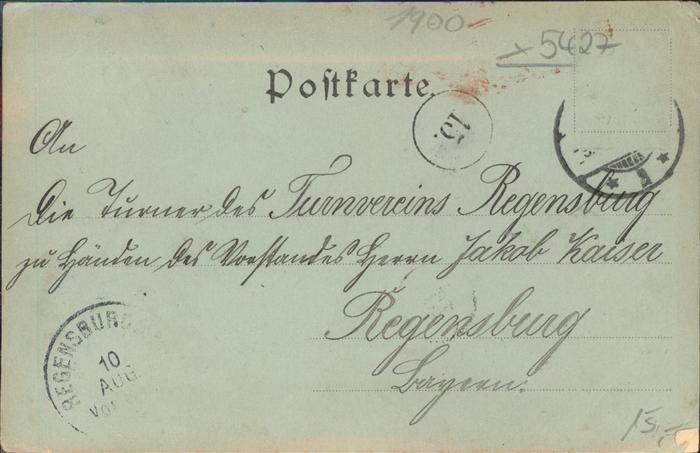 1900
5427
Postkarte.
15.
An
Die Turner des Turnvereins Regensburg
zu Händen des Vorstandes Herrn Jakob Kaiser
Regensburg
Bayern.
REGENSBURG
10
AUG
Vor
15,-